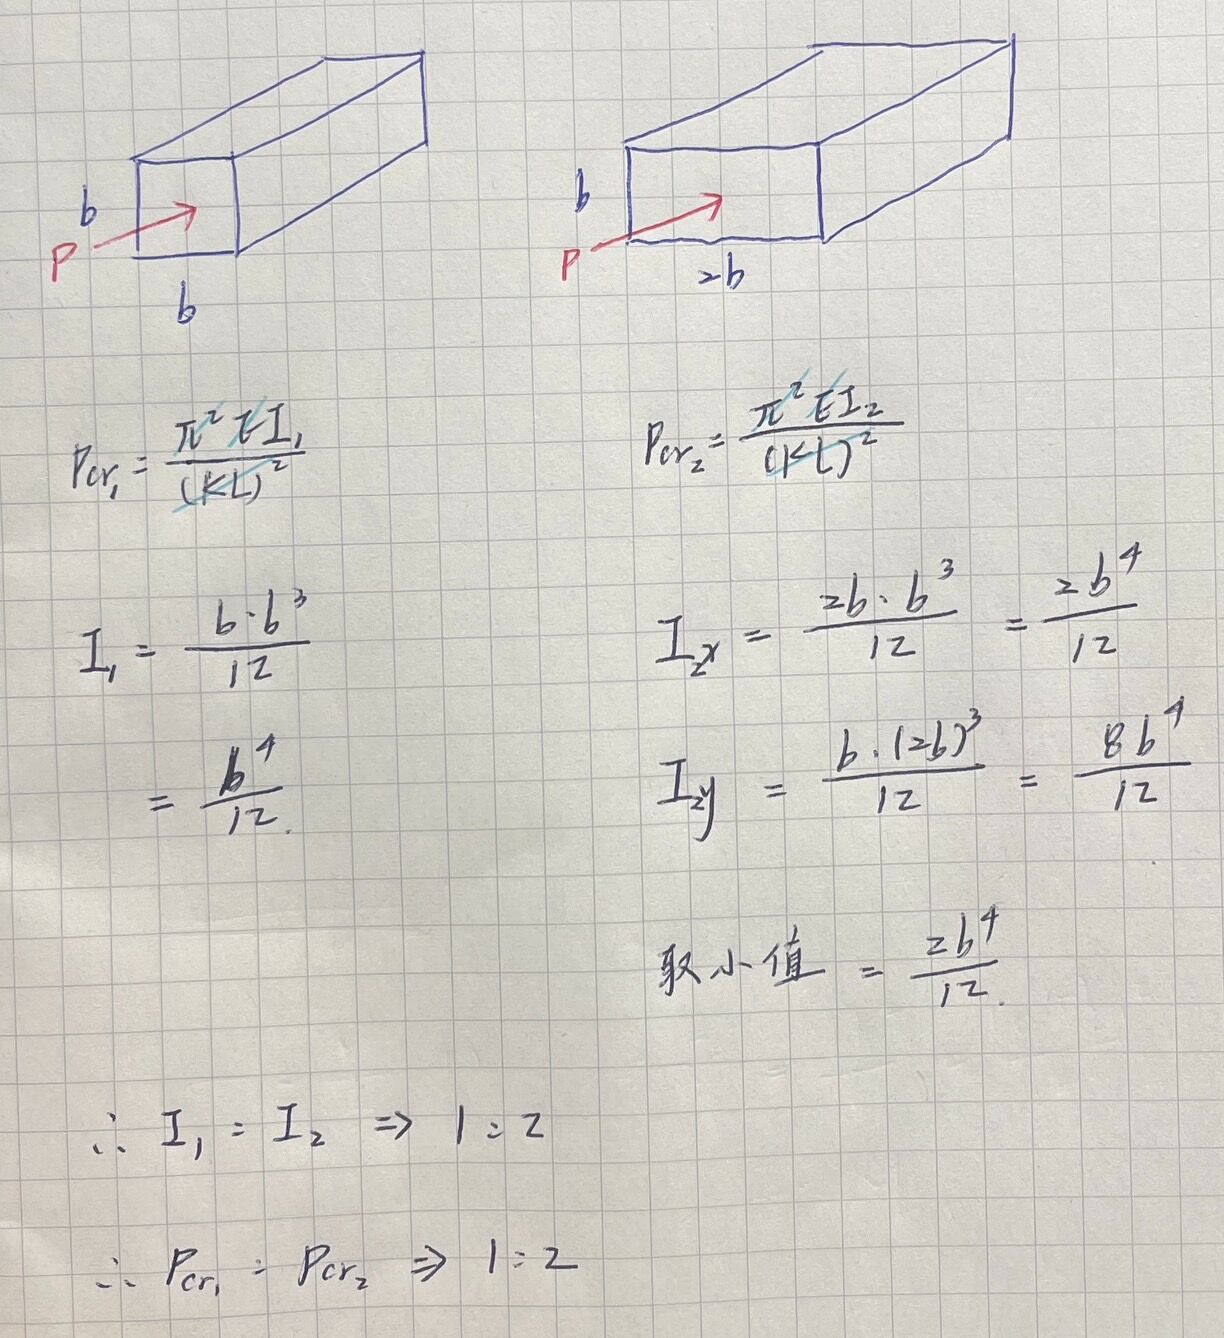 b
P
b
b
P
2b
Pcr₁ = π²EI₁/(KL)²
Pcr₂ = π²EI₂/(KL)²
I₁ = b·b³/12
= b⁴/12.
I₂x = 2b·b³/12 = 2b⁴/12
I₂y = b·(2b)³/12 = 8b⁴/12
取小值 = 2b⁴/12.
∴ I₁ : I₂ ⇒ 1 : 2
∴ Pcr₁ : Pcr₂ ⇒ 1 : 2